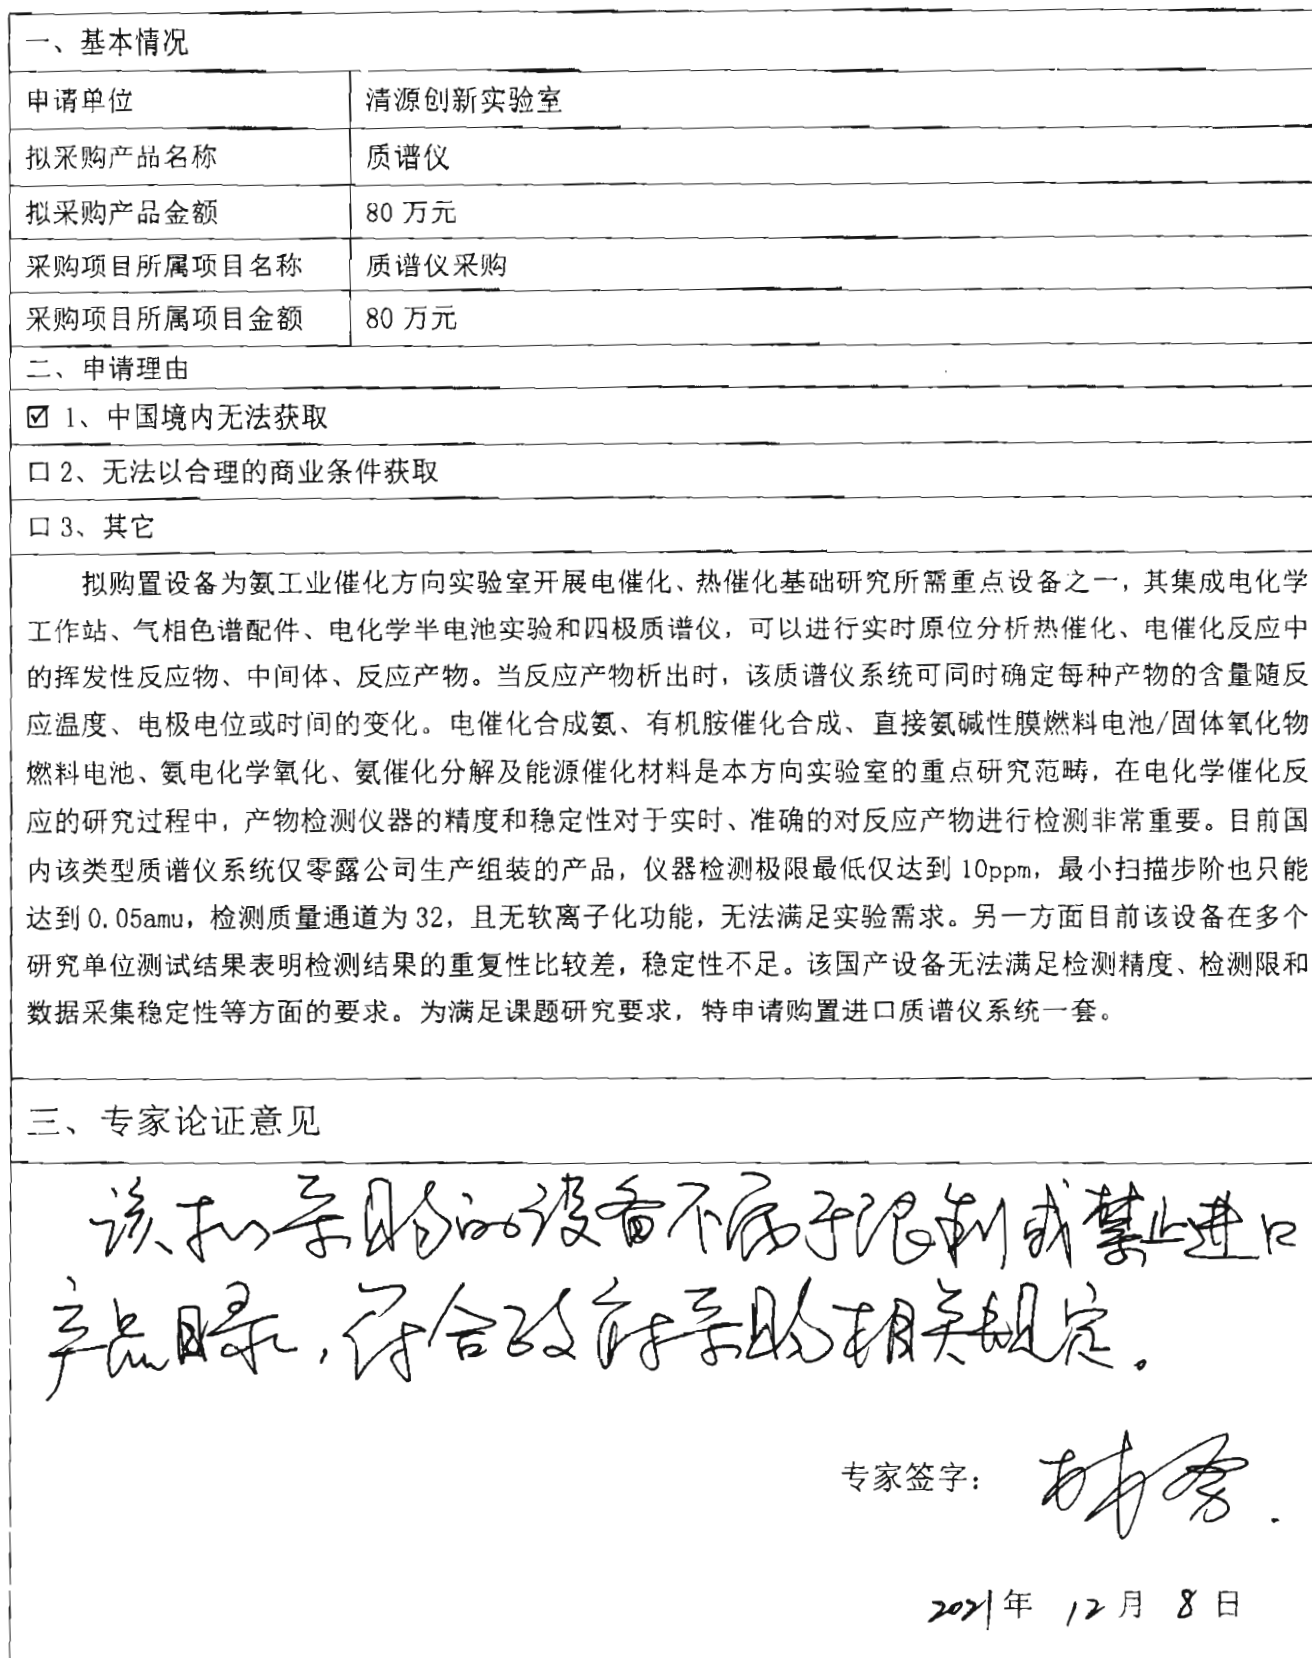 一、基本情况
申请单位 清源创新实验室
拟采购产品名称 质谱仪
拟采购产品金额 80 万元
采购项目所属项目名称 质谱仪采购
采购项目所属项目金额 80 万元
二、申请理由
☑ 1、中国境内无法获取
口 2、无法以合理的商业条件获取
口 3、其它
拟购置设备为氨工业催化方向实验室开展电催化、热催化基础研究所需重点设备之一，其集成电化学
工作站、气相色谱配件、电化学半电池实验和四极质谱仪，可以进行实时原位分析热催化、电催化反应中
的挥发性反应物、中间体、反应产物。当反应产物析出时，该质谱仪系统可同时确定每种产物的含量随反
应温度、电极电位或时间的变化。电催化合成氨、有机胺催化合成、直接氨碱性膜燃料电池/固体氧化物
燃料电池、氨电化学氧化、氨催化分解及能源催化材料是本方向实验室的重点研究范畴，在电化学催化反
应的研究过程中，产物检测仪器的精度和稳定性对于实时、准确的对反应产物进行检测非常重要。目前国
内该类型质谱仪系统仅零露公司生产组装的产品，仪器检测极限最低仅达到 10ppm，最小扫描步阶也只能
达到 0.05amu，检测质量通道为 32，且无软离子化功能，无法满足实验需求。另一方面目前该设备在多个
研究单位测试结果表明检测结果的重复性比较差，稳定性不足。该国产设备无法满足检测精度、检测限和
数据采集稳定性等方面的要求。为满足课题研究要求，特申请购置进口质谱仪系统一套。
三、专家论证意见
该拟采购的设备不属于限制或禁止进口
产品目录，符合政府采购相关规定。
专家签字：
2021年 12月 8日